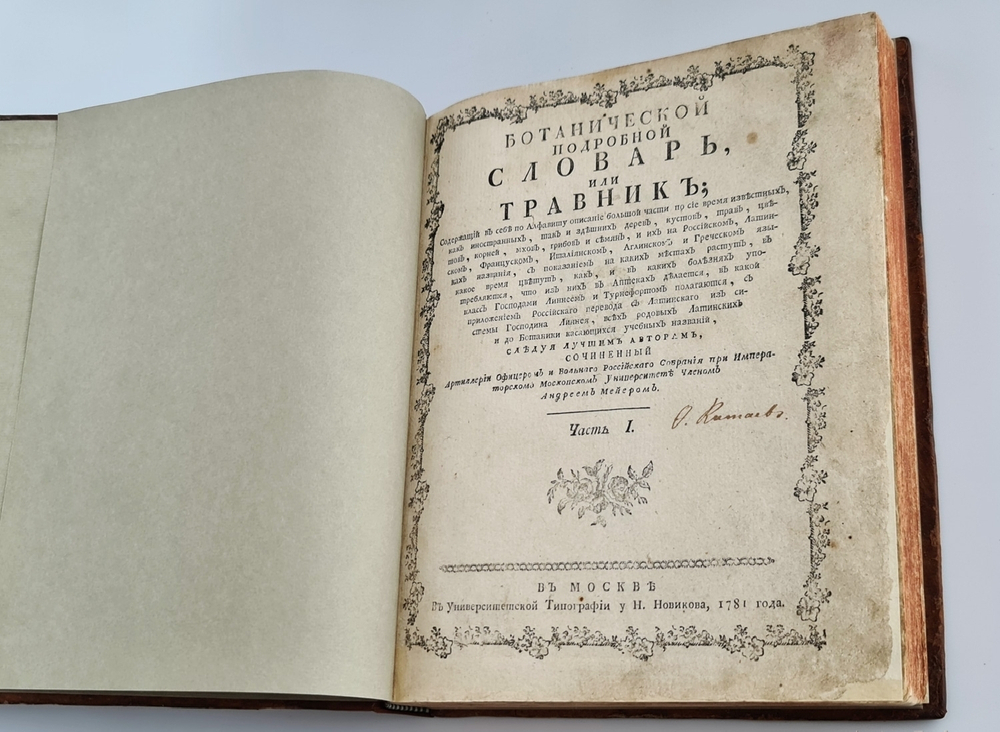 БОТАНИЧЕСКОЙ
ПОДРОБНОЙ
СЛОВАРЬ,
ИЛИ
ТРАВНИКЪ;
Содержащїй въ себѣ по Алфавиту описанїе большой части по сїе время извѣстныхъ,
какъ иностранныхъ, такъ и здѣшнихъ деревъ, кустовъ, травъ, цвѣ-
товъ, корней, мховъ, грибовъ и сѣмянъ, и ихъ на Россїйскомъ, Латин-
скомъ, Французскомъ, Италїянскомъ, Аглинскомъ и Греческомъ язы-
кахъ названїя, съ показанїемъ на какихъ мѣстахъ растутъ, въ
какое время цвѣтутъ, какъ, и въ какихъ болѣзняхъ упо-
требляются, что изъ нихъ въ Аптекахъ дѣлается, въ какой
классъ Господами Линнеемъ и Турнефортомъ полагаются, съ
приложенїемъ Россїйскаго перевода съ Латинскаго изъ си-
стемы Господина Линнея, всѣхъ родовыхъ Латинскихъ
и до Ботаники касающихся учебныхъ названїй,
СЛѢДУЯ ЛУЧШИМЪ АВТОРАМЪ,
СОЧИНЕННЫЙ
Артиллерїи Офицеромъ и Вольнаго Россїйскаго Собранїя при Импера-
торскомъ Московскомъ Университетѣ Членомъ
Андреемъ Мейеромъ.
Часть I.
О. Китаевъ.
ВЪ МОСКВѢ
Въ Университетской Типографїи у Н. Новикова, 1781 года.